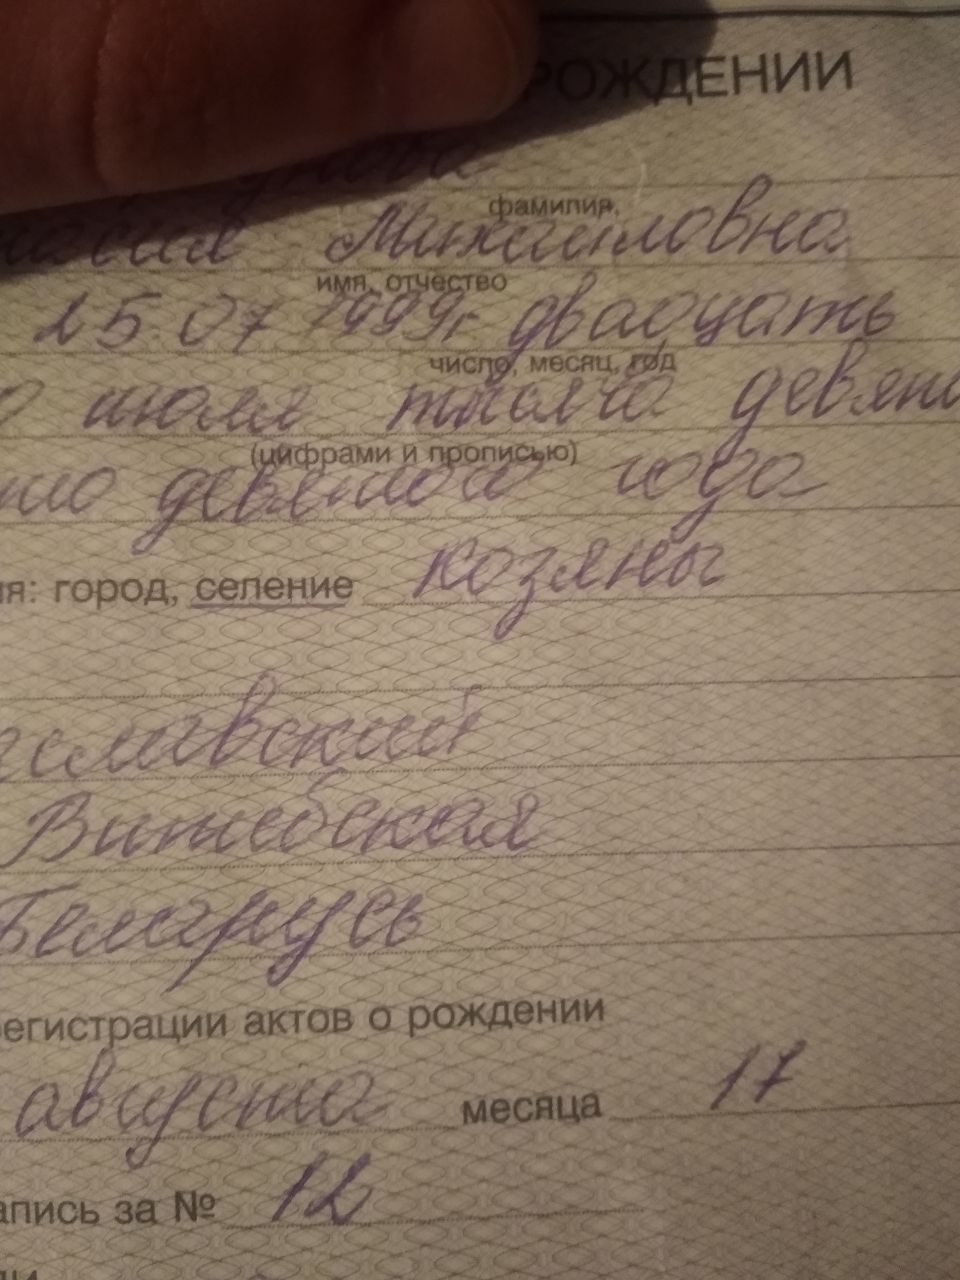 РОЖДЕНИИ
фамилия,
Михайловна
имя, отчество
25.07 1999г двадцать
число, месяц, год
июля тысяча девять
(цифрами и прописью)
девятого года
ия: город, селение Козяны
Витебская
Беларусь
регистрации актов о рождении
августа месяца 17
апись за № 12